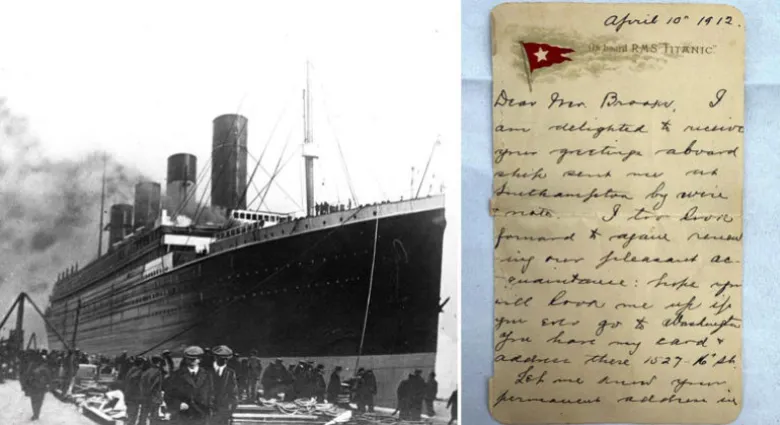 April 10th 1912.
On board R.M.S. "TITANIC"
Dear Mr. Brooke, I
am delighted to receive
your greetings aboard
ship sent me at
Southampton by wire
& note. I too look
forward to again renew
-ing our pleasant ac-
quaintance: hope you
will look me up if
you ever go to Washington
You have my card &
address there 1527-16 St.
Let me know your
permanent address in